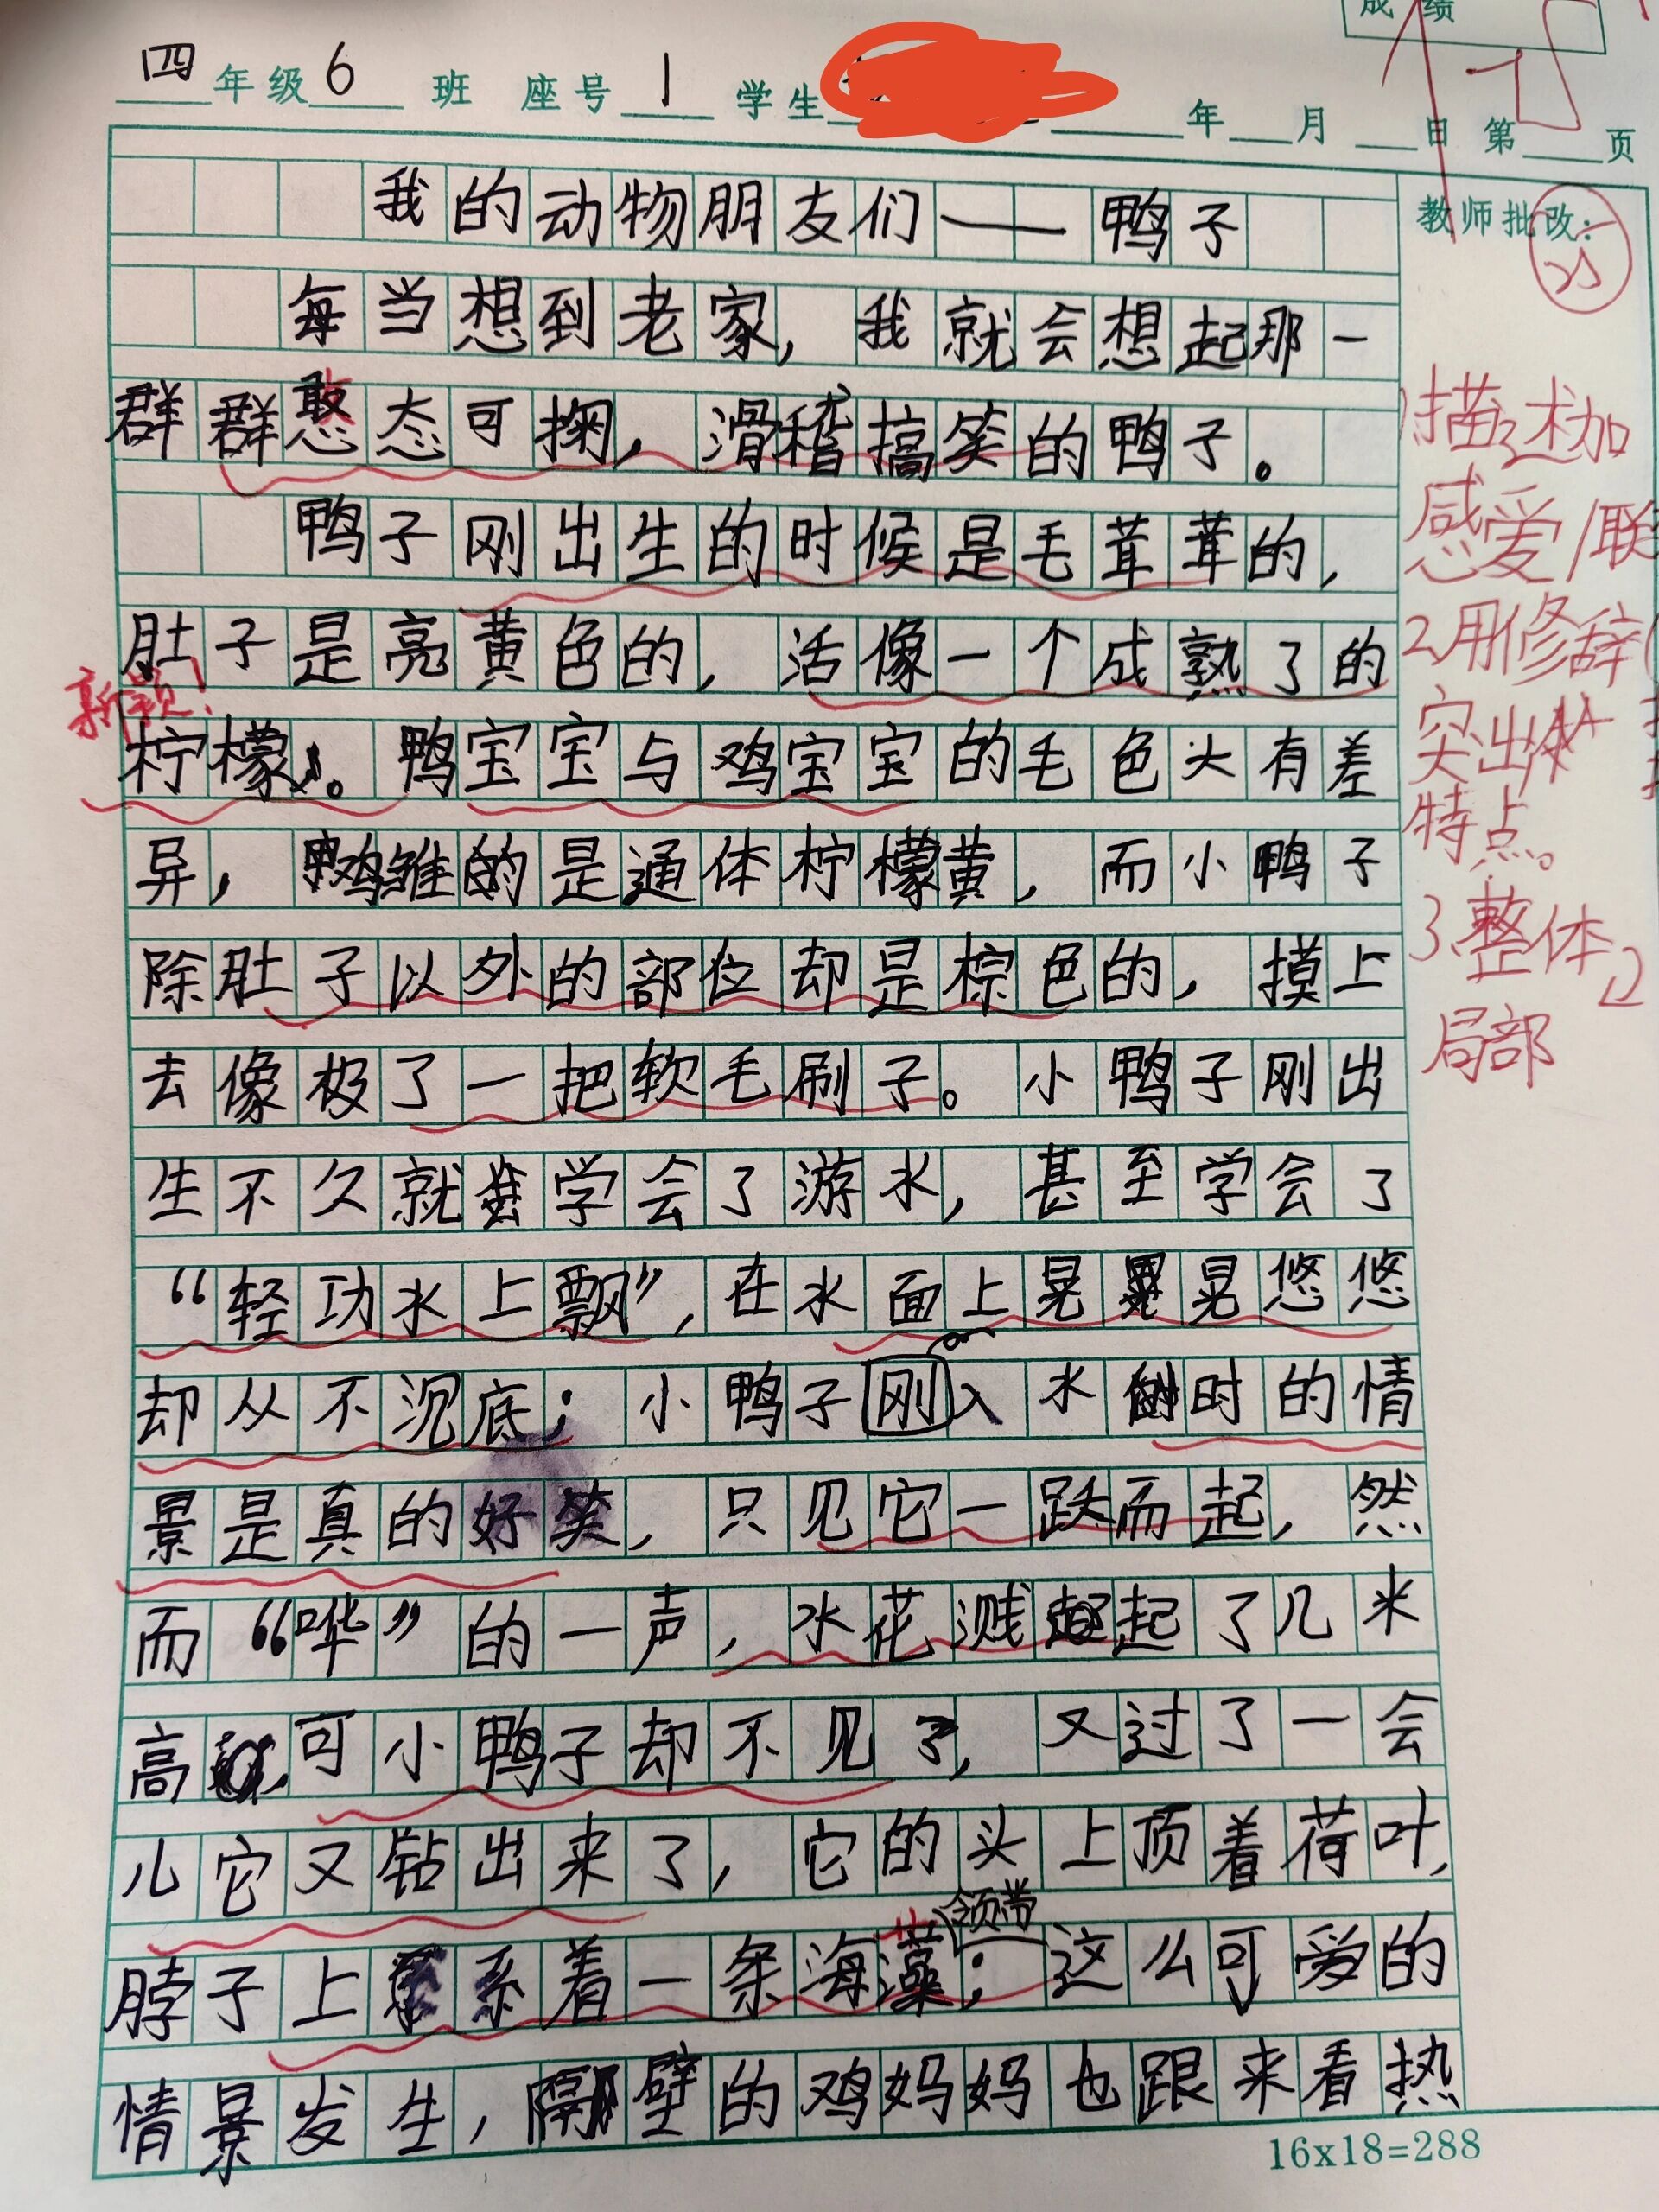 成绩
四年级6班 座号1学生 年 月 日 第 页
我的动物朋友们——鸭子
教师批改:
每当想到老家，我就会想起那一
群群憨态可掬，滑稽搞笑的鸭子。
鸭子刚出生的时候是毛茸茸的，
肚子是亮黄色的，活像一个成熟了的
新颖！
柠檬。鸭宝宝与鸡宝宝的毛色大有差
异，鸡雏的是通体柠檬黄，而小鸭子
除肚子以外的部位却是棕色的，摸上
去像极了一把软毛刷子。小鸭子刚出
生不久就学会了游水，甚至学会了
“轻功水上飘”，在水面上晃晃悠悠
却从不沉底；小鸭子刚入水时的情
景是真的好笑，只见它一跃而起，然
而“哗”的一声，水花溅起了几米
高，可小鸭子却不见了，又过了一会
儿它又钻出来了，它的头上顶着荷叶，
脖子上系着一条海藻领带；这么可爱的
情景发生，隔壁的鸡妈妈也跟来看热
16x18=288
1描述加
感爱/联
2用修辞(
突出
特点。
3、整体
局部